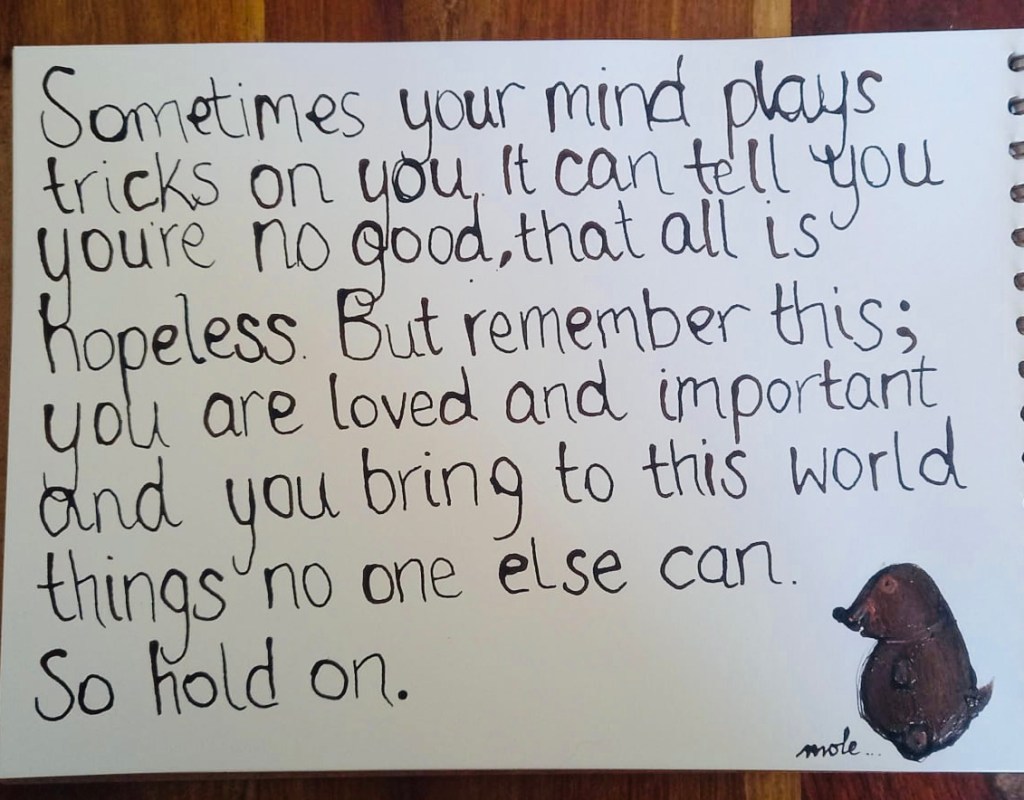 Sometimes your mind plays
tricks on you. It can tell you
you're no good, that all is
hopeless. But remember this;
you are loved and important
and you bring to this world
things no one else can.
So hold on.
mole...